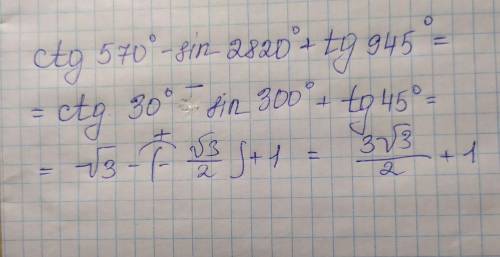 ctg 570° - sin 2820° + tg 945° =
= ctg 30° - sin 300° + tg 45° =
= √3 - (- √3/2) + 1 = 3√3/2 + 1